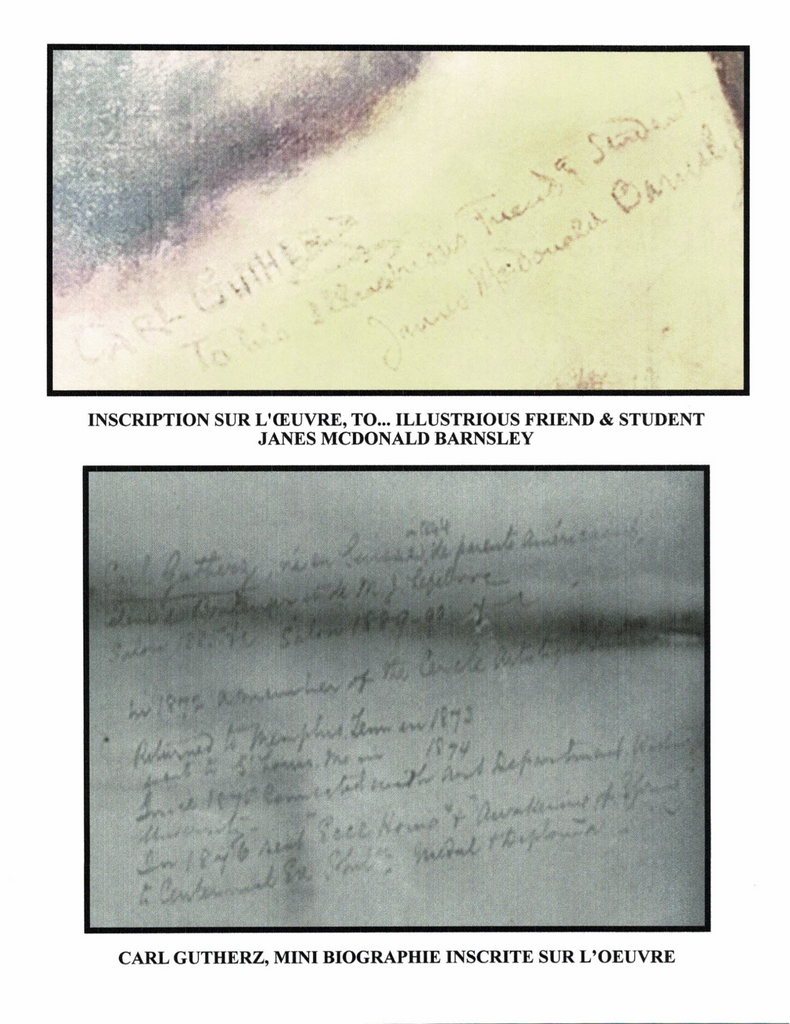 CARL GUTHERZ
To his Illustrious Friend & Student
James McDonald Barnsley
INSCRIPTION SUR L'ŒUVRE, TO... ILLUSTRIOUS FRIEND & STUDENT
JANES MCDONALD BARNSLEY
1844
Carl Gutherz, né en Suisse, de parents Américains,
et de M. J. Lefebvre
Salon Salon 1889-90
In 1872 a member of the Cercle Artistique
Returned to Memphis, Tenn in 1873
went to St Louis, Mo in 1874
Since 1875 Connected with Art Department,
University
In 1876 sent "Ecce Homo" & "Awakening of Spring"
to Centennial Ex Phila. Medal & Diploma
CARL GUTHERZ, MINI BIOGRAPHIE INSCRITE SUR L'OEUVRE